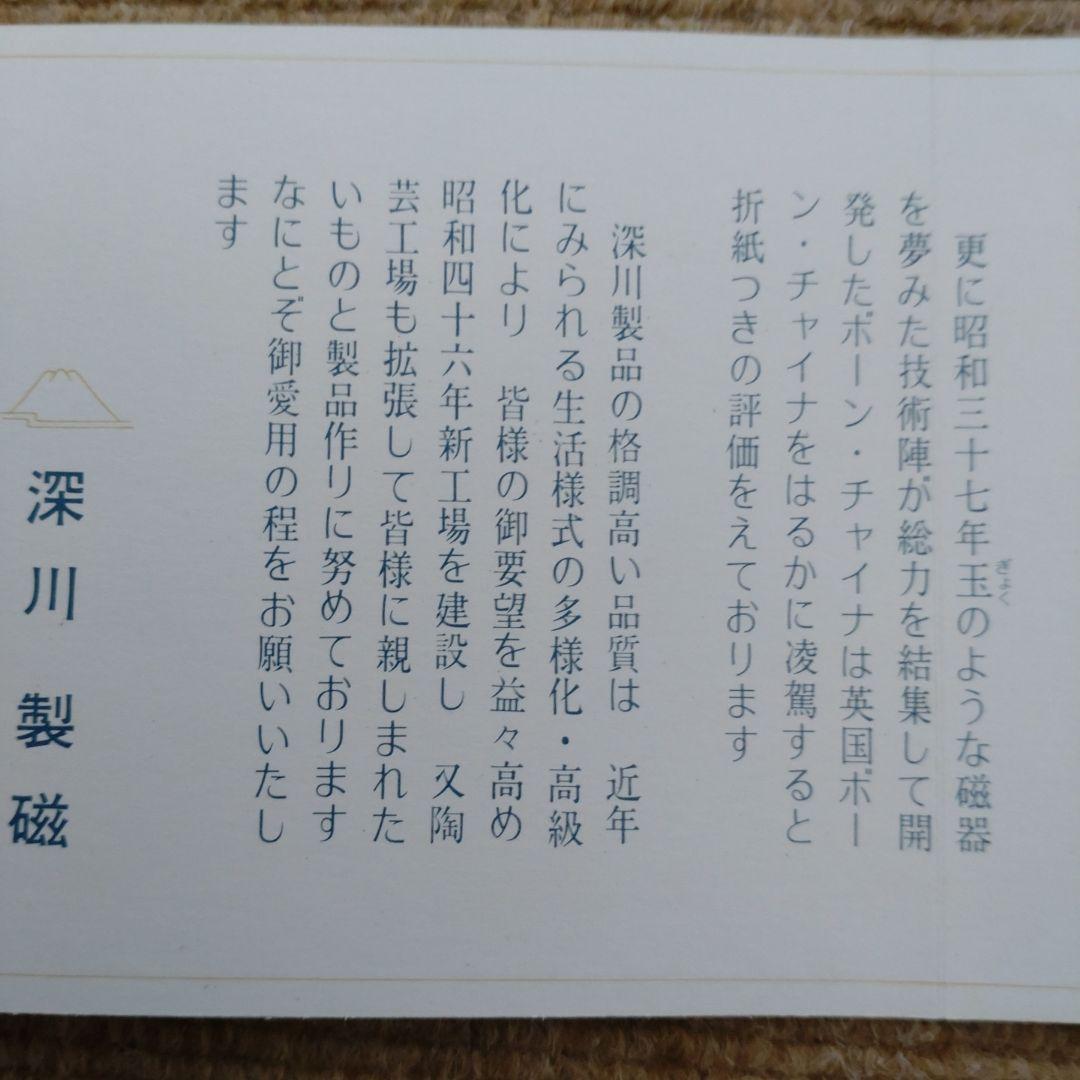 更に昭和三十七年玉のような磁器
ぎょく
を夢みた技術陣が総力を結集して開
発したボーン・チャイナは英国ボー
ン・チャイナをはるかに凌駕すると
折紙つきの評価をえております
深川製品の格調高い品質は　近年
にみられる生活様式の多様化・高級
化により　皆様の御要望を益々高め
昭和四十六年新工場を建設し　又陶
芸工場も拡張して皆様に親しまれた
いものと製品作りに努めております
なにとぞ御愛用の程をお願いいたし
ます
深川製磁